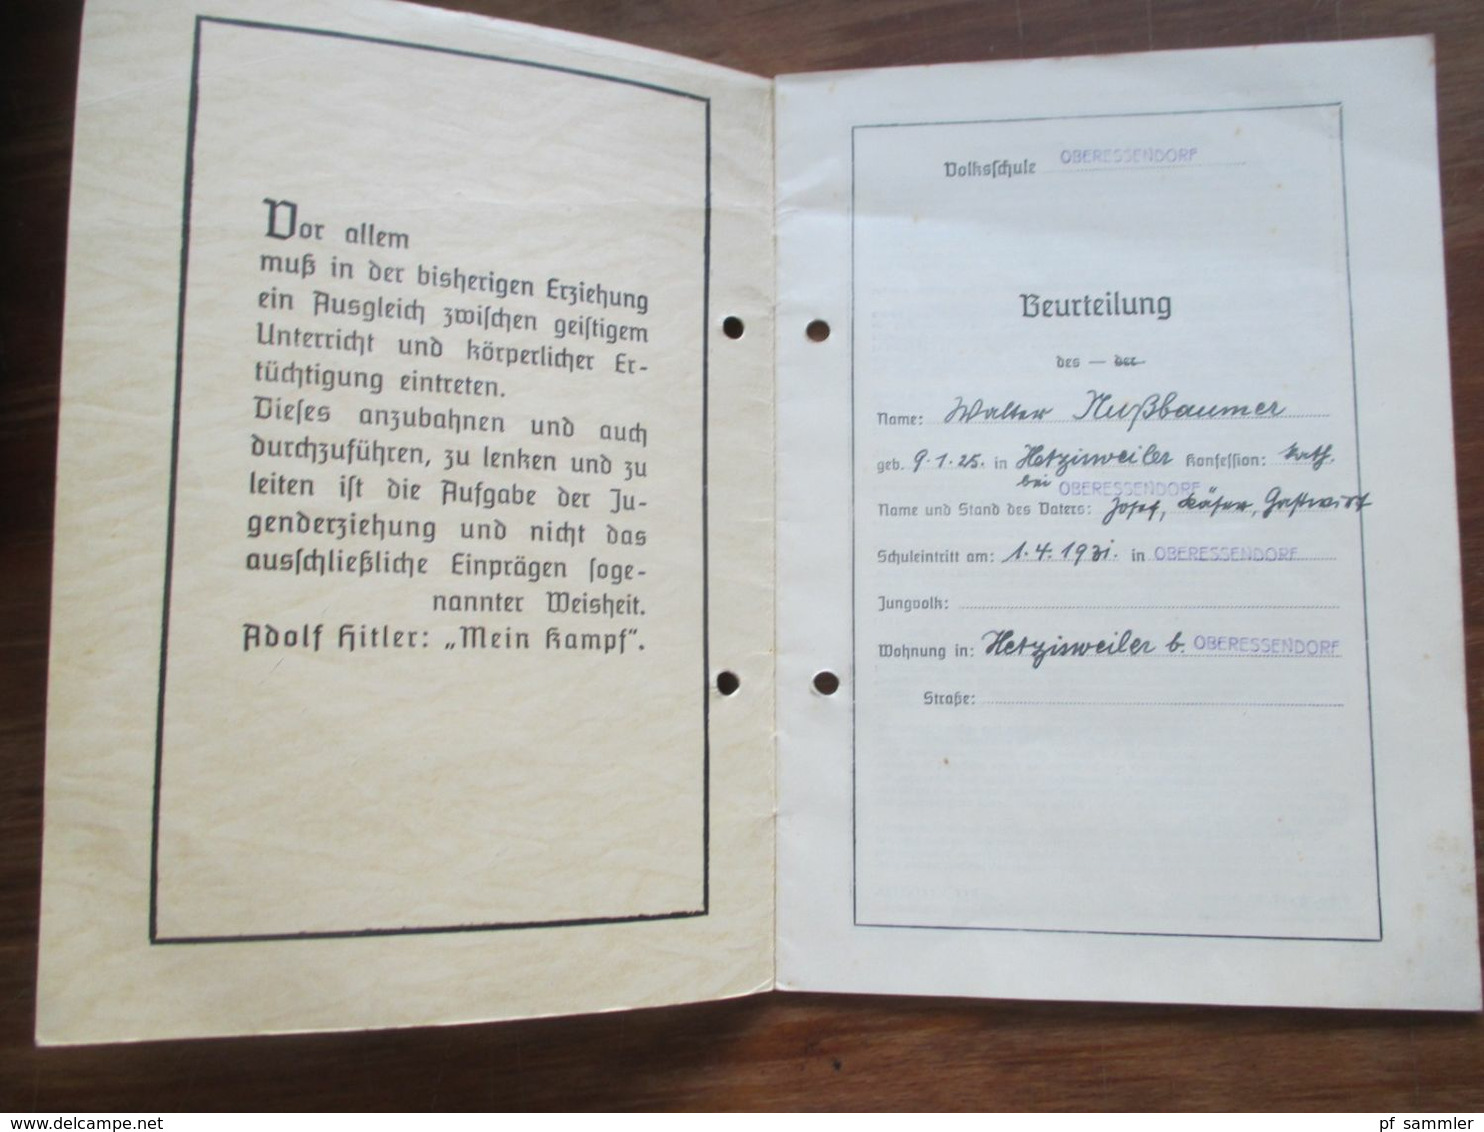 Vor allem
muß in der bisherigen Erziehung
ein Ausgleich zwischen geistigem
Unterricht und körperlicher Er-
tüchtigung eintreten.
Dieses anzubahnen und auch
durchzuführen, zu lenken und zu
leiten ist die Aufgabe der Ju-
genderziehung und nicht das
ausschließliche Einprägen soge-
nannter Weisheit.
Adolf Hitler: „Mein Kampf“.
Volksschule OBERESSENDORF
Beurteilung
des — der
Name: Walter Nußbaumer
geb. 9.1.25. in Hetzisweiler Konfession: kath.
bei OBERESSENDORF
Name und Stand des Vaters: Josef, Käser, Gastwirt
Schuleintritt am: 1.4.1931. in OBERESSENDORF
Jungvolk:
Wohnung in: Hetzisweiler b. OBERESSENDORF
Straße:
www.delcampe.net
pf_sammler